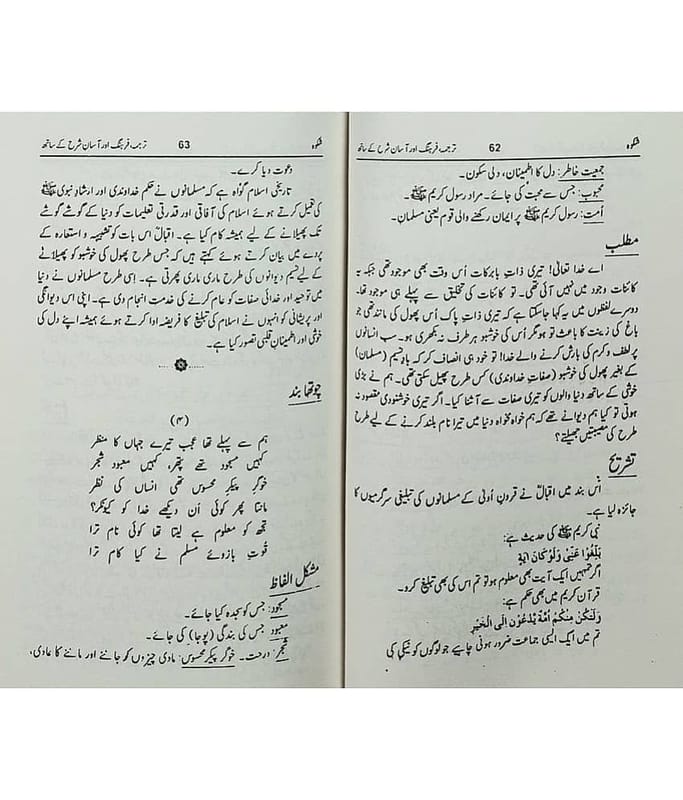 شکوہ 62 ترجمہ، فرہنگ اور آسان شرح کے ساتھ
جمعیت خاطر: دل کا اطمینان، دلی سکون۔
محبوب: جس سے محبت کی جائے۔ مراد رسول کریم ﷺ۔
اُمت: رسول کریم ﷺ پر ایمان رکھنے والی قوم یعنی مسلمان۔
مطلب
اے خدا تعالیٰ! تیری ذات بابرکات اُس وقت بھی موجود تھی جبکہ یہ
کائنات وجود میں نہیں آئی تھی۔ تو کائنات کی تخلیق سے پہلے ہی موجود تھا۔
دوسرے لفظوں میں یہ کہا جا سکتا ہے کہ تیری ذات پاک اُس پھول کی مانند تھی جو
باغ کی زینت کا باعث تو ہو مگر اُس کی خوشبو ہر طرف نہ بکھری ہو۔ سب انسانوں
پر لطف و کرم کی بارش کرنے والے خدا! تو خود ہی انصاف کر کہ بادِ نسیم (مسلمان)
کے بغیر پھول کی خوشبو (صفات خداوندی) کس طرح پھیل سکتی تھی۔ ہم نے بڑی
خوشی کے ساتھ دنیا والوں کو تیری صفات سے آشنا کیا۔ اگر تیری خوشنودی مقصود نہ
ہوتی تو کیا ہم دیوانے تھے کہ ہم خواہ مخواہ دنیا میں تیرا نام بلند کرنے کے لیے طرح
طرح کی مصیبتیں جھیلتے؟
تشریح
اُس بند میں اقبالؒ نے قرونِ اُولیٰ کے مسلمانوں کی تبلیغی سرگرمیوں کا
جائزہ لیا ہے۔
نبی کریم ﷺ کی حدیث ہے:
بَلِّغُوْا عَنِّیْ وَلَوْ کَانَ اٰیَةً
اگر تمہیں ایک آیت بھی معلوم ہو تو تم اس کی بھی تبلیغ کرو۔
قرآن کریم میں بھی حکم ہے:
وَلْتَکُنْ مِنْکُمْ اُمَّةٌ یَّدْعُوْنَ اِلَی الْخَیْرِ
تم میں ایک ایسی جماعت ضرور ہونی چاہیے جو لوگوں کو نیکی کی
شکوہ 63 ترجمہ، فرہنگ اور آسان شرح کے ساتھ
دعوت دیا کرے۔
تاریخ اسلام گواہ ہے کہ مسلمانوں نے حکم خداوندی اور ارشادِ نبوی ﷺ
کی تعمیل کرتے ہوئے اسلام کی آفاقی اور قدرتی تعلیمات کو دنیا کے گوشے گوشے
تک پھیلانے کے لیے ہمیشہ کام کیا ہے۔ اقبالؒ اس بات کو تشبیہ و استعارہ کے
پردے میں بیان کرتے ہوئے کہتے ہیں کہ جس طرح پھول کی خوشبو کو پھیلانے
کے لیے نسیم دیوانوں کی طرح ماری ماری پھرتی ہے۔ اِسی طرح مسلمانوں نے دنیا
میں توحید اور خدائی صفات کو عام کرنے کی خدمت انجام دی ہے۔ اپنی اس دیوانگی
اور پریشانی کو انہوں نے اسلام کی تبلیغ کا فریضہ ادا کرتے ہوئے ہمیشہ اپنے دل کی
خوشی اور اطمینان قلبی تصور کیا ہے۔
چوتھا بند
(۴)
ہم سے پہلے تھا عجب تیرے جہاں کا منظر
کہیں مسجود تھے پتھر، کہیں معبود شجر
خوگرِ پیکرِ محسوس تھی انساں کی نظر
مانتا پھر کوئی اَن دیکھے خدا کو کیونکر؟
تجھ کو معلوم ہے لیتا تھا کوئی نام ترا
قوتِ بازوئے مسلم نے کیا کام ترا
مشکل الفاظ
مسجود: جس کو سجدہ کیا جائے۔
معبود: جس کی بندگی (پوجا) کی جائے۔
شجر: درخت۔ خوگرِ پیکرِ محسوس: مادی چیزوں کو جاننے اور ماننے کا عادی،